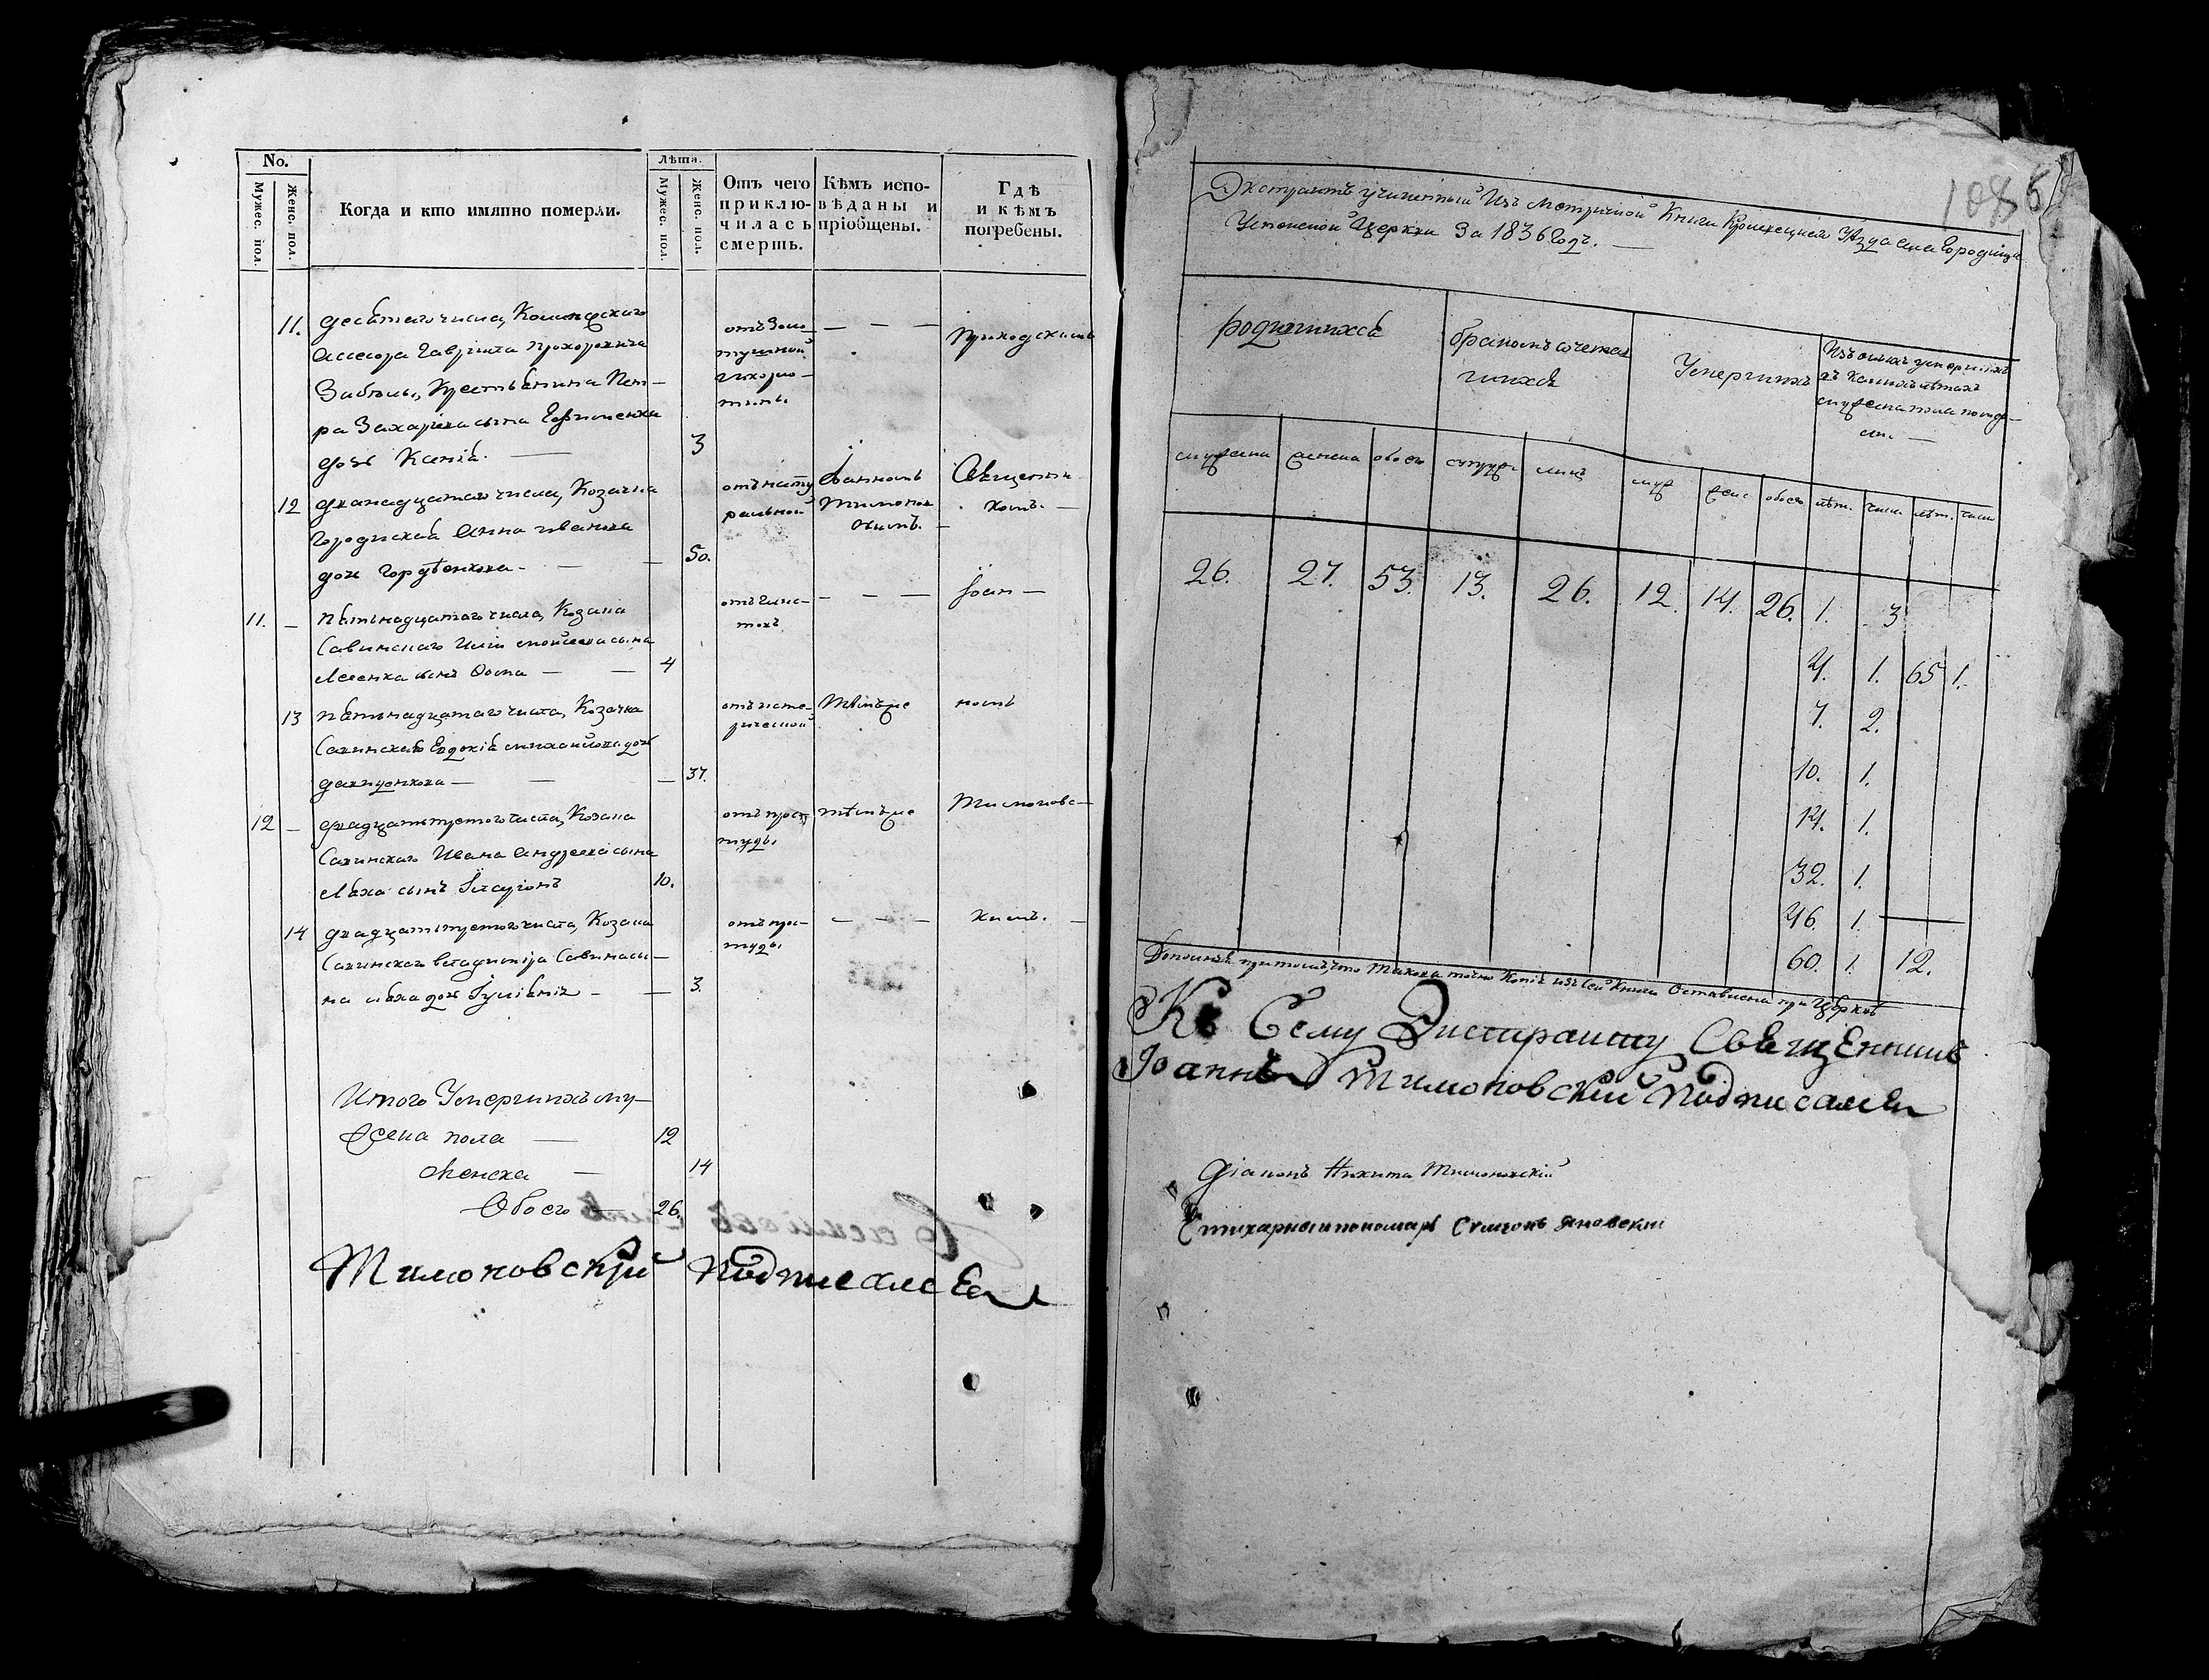 No.
Мужес. пол.
Женс. пол.
Когда и кто имянно померли.
Лѣта.
Мужес. пол.
Женс. пол.
Отъ чего
приклю-
чилась
смерть.
Кѣмъ испо-
вѣданы и
пріобщены.
Гдѣ
и кѣмъ
погребены.
11. десятаго числа, Колежскаго
Ассесора Гавріила Прохоровича
Забѣлы, Крестьянина Пет-
ра Захаріева сына Ефименка
дочь Ксенія. — 3
отъ Золо
тушной
— — —
Приходскимъ
12 дванадцатаго числа, Козачка
Городиская Анна Иванова
дочь Гордѣенкова — — 50.
отъ нату
ральной
Іоанномъ
Тимонов
скимъ. —
Священни
комъ. —
11. — пятьнадцатаго числа, Козака
Савинскаго Иліи Моисеева сына
сынъ Фома — — 4
отъ глис-
товъ
— — —
Іоан —
13 пятьнадцатаго числа, Козачка
Савинская Евдокія Михайлова дочь
— — 37.
отъ исте-
рической
Тѣмъ же
номъ
12 — двадцатьтретого числа, Козака
Савинскаго Ивана Андреева сына
Ляха сынъ Иларіонъ 10.
отъ прос
туды
тѣмъ же
Тимоновс—
14 двадцатьтретого числа, Козака
Савинскаго Владимира Савина сы—
на Ляха дочь Іуліянія — — 3.
отъ прос-
туды
— — —
кимъ. —
Итого Умершихъ му—
жеска пола — 12
Женска — 14
Обоего — 26.
Тимоновскій подписался
1086
Экстрактъ учиненный Изъ Метричной Книги Кролевецкаго Уѣзда села Городища
Успенской Церкви За 1836 Годъ. —
родившихся
бракомъ сочетав
шихся
Умершихъ
Изъ оныхъ умершихъ
въ каковыхъ лѣтахъ
мужеска пола помер—
ли. —
мужеска женска обоего супруж лицъ муж женс обоего лѣт. числ. лѣт. число
26. 27. 53. 13. 26. 12. 14. 26. 1. 3
4. 1. 65 1.
7. 2.
10. 1.
14. 1.
32. 1.
46. 1. —
60. 1. 12.
притомъ, что такова точно Копія изъ Сей Книги Оставлена при Церквѣ
Къ Сему Экстракту Священникъ
Іоаннъ Тимоновскій подписался
Діаконъ Никита Тимоновскій
Стихарный пономарь Симеонъ Яновский